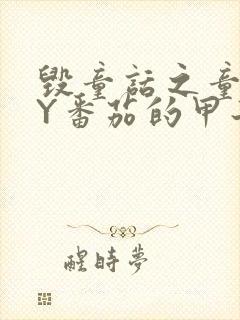 毁童话之童
Y番茄的甲
醒时梦